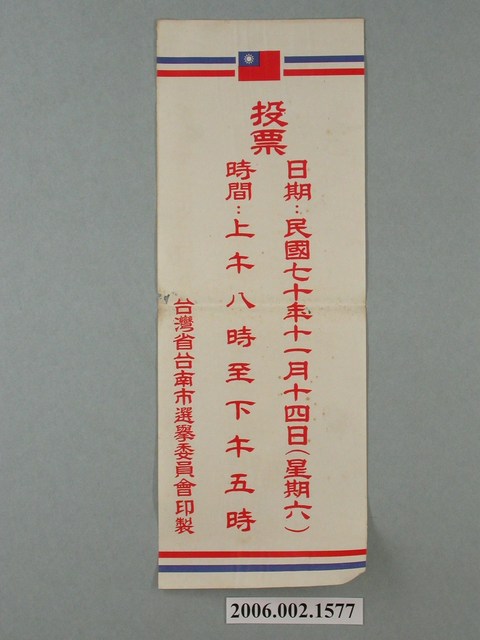 投票
日期：民國七十年十一月十四日（星期六）
時間：上午八時至下午五時
台灣省台南市選舉委員會印製
2006.002.1577